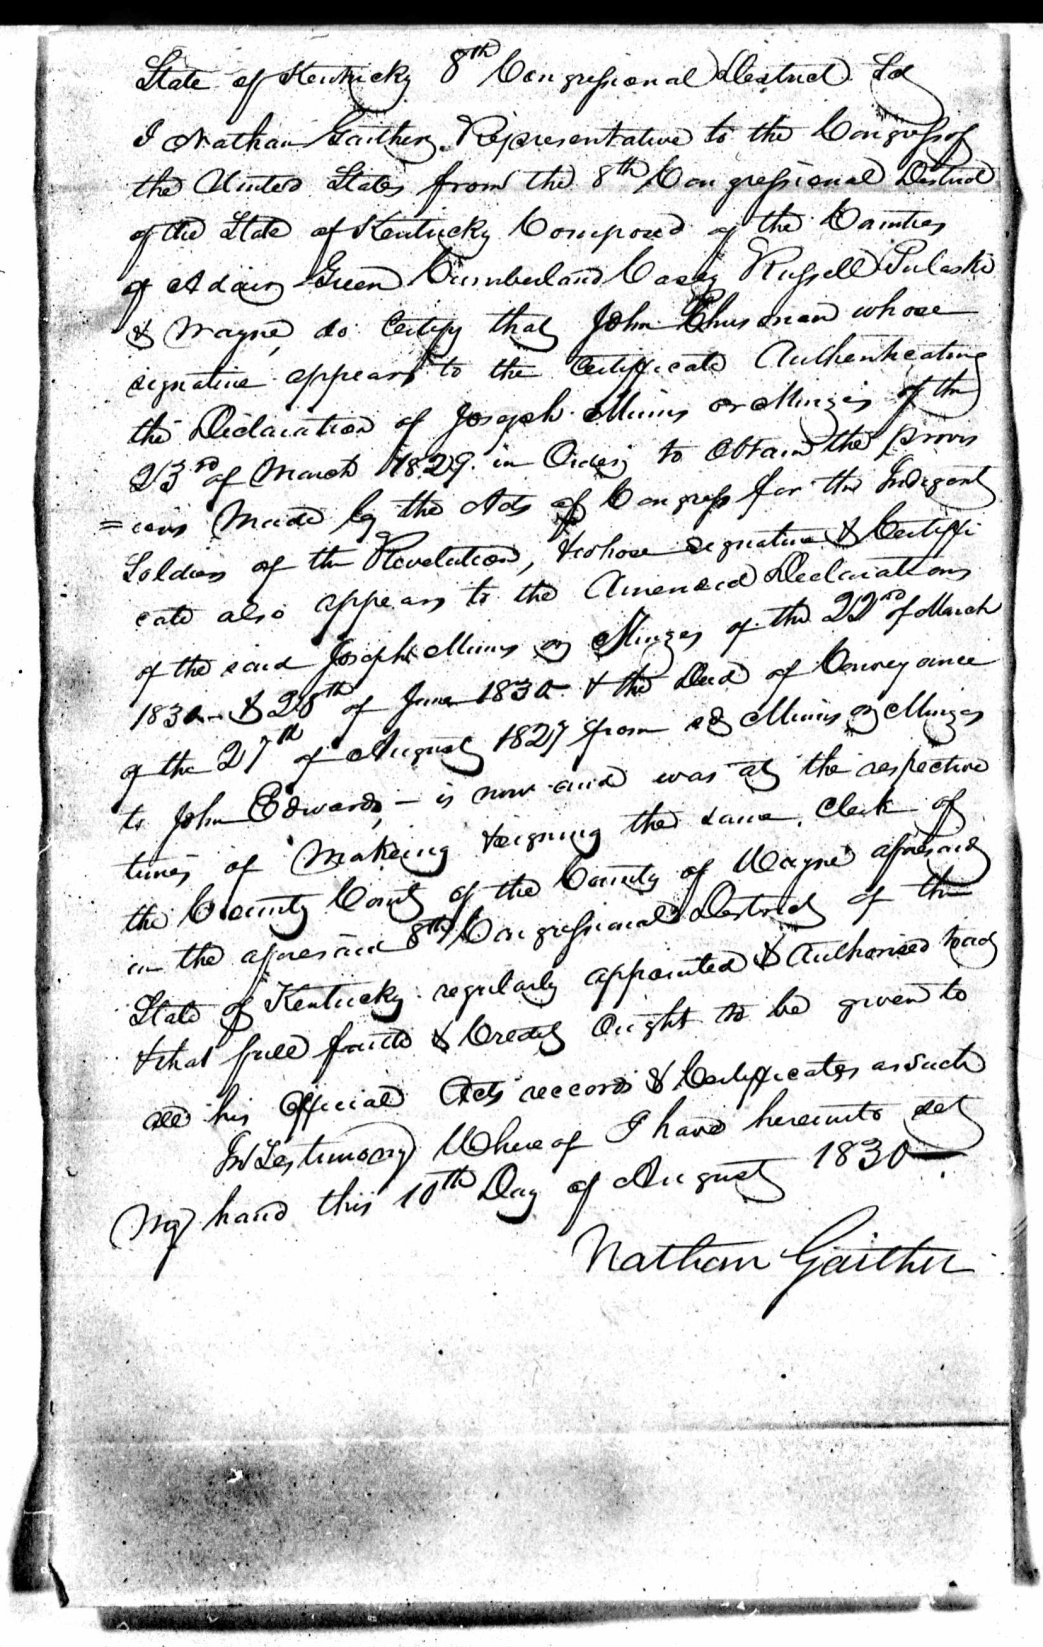 State of Kentucky 8th Congressional District Sct
I Nathan Gaither, Representative to the Congress of
the United States from the 8th Congressional District
of the State of Kentucky Composed of the Counties
of Adair Green Cumberland Casey Russell Pulaski
& Wayne, do Certify that John Chrisman whose
signature appears to the Certificate Authenticating
the Declaration of Joseph Mims or Minzes of the
23rd of March 1829. in Order to Obtain the provis
=ions Made by the Acts of Congress for the Indigent
Soldiers of the Revolution, & whose signature & Certifi
cate also appears to the Amended Declarations
of the said Joseph Mims or Minzes of the 22nd of March
1830 & 28th of June 1830 & the Deed of Conveyance
of the 27th of August 1827 from sd Mims or Minzes
to John Edwards, – is now and was at the respective
times of Making & signing the same, Clerk of
the County Court of the County of Wayne aforesaid
in the aforesaid 8th Congressional District of the
State of Kentucky regularly appointed & Authorised to act
& that full faith & Credit Ought to be given to
all his Official Acts reccords & Certificates as such
In Testimony Whereof I have hereunto set
My hand this 10th Day of August 1830
Nathan Gaither